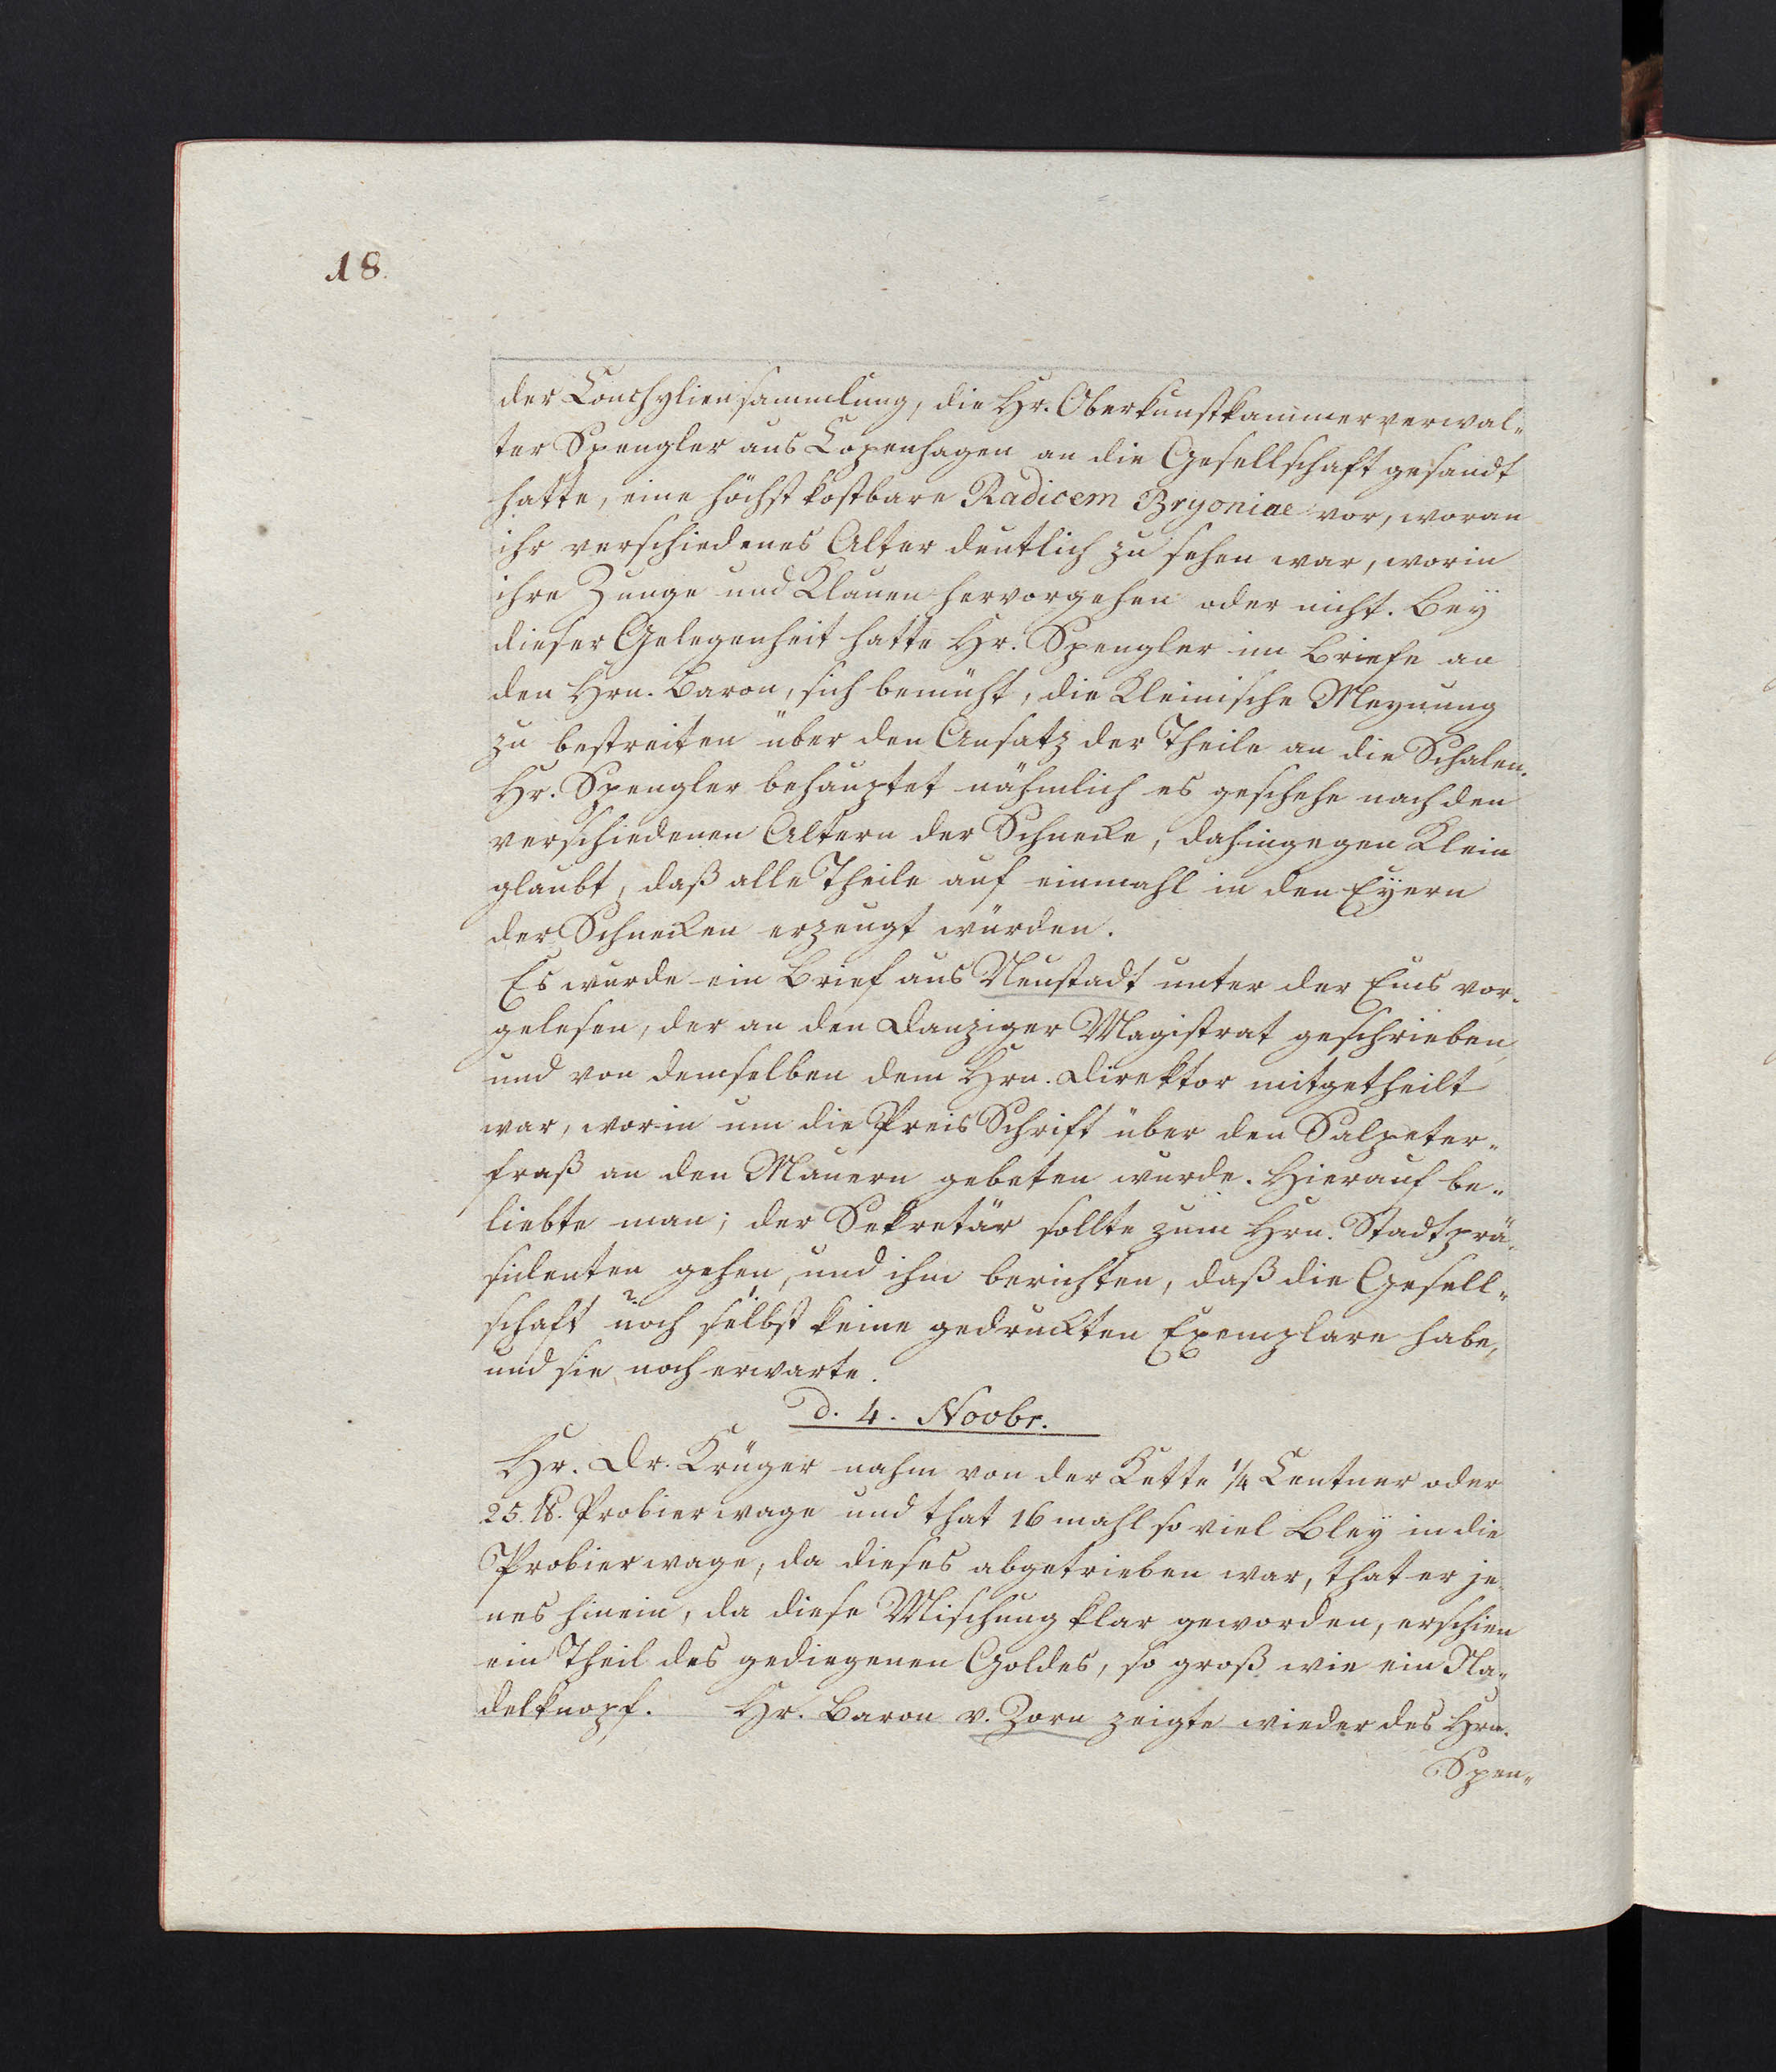 18.
der Conchyliensammlung, die Hr. Oberkunstkammerverwal-
ter Spengler aus Copenhagen an die Gesellschaft gesandt
hatte, eine höchst kostbare Radicem Bryoniae vor, woran
ihr verschiedenes Alter deutlich zu sehen war, worin
ihre Zunge und Klauen hervorgehen oder nicht. Bey
dieser Gelegenheit hatte Hr. Spengler im Briefe an
den Hrn. Baron, sich bemüht, die Kleinische Meynung
zu bestreiten über den Ansatz der Theile an die Schalen.
Hr. Spengler behauptet nähmlich es geschehe nach den
verschiedenen Altern der Schnecke, dahingegen Klein
glaubt, daß alle Theile auf einmahl in den Eyern
der Schnecken erzeugt würden.
Es wurde ein Brief aus Neustadt unter der Ems vor-
gelesen, der an den Danziger Magistrat geschrieben,
und von demselben dem Hrn. Direktor mitgetheilt
war, worin um die Preis Schrift über den Salpeter-
fraß an den Mauern gebeten wurde. Hierauf be-
liebte man; der Sekretär sollte zum Hrn. Stadtprä-
sidenten gehen, und ihm berichten, daß die Gesell-
schaft noch selbst keine gedruckten Exemplare habe,
und sie noch erwarte.
d. 4. Novbr.
Hr. Dr. Krüger nahm von der Kette 1/4 Centner oder
25. ℔. Probierwage und that 16 mahl so viel Bley in die
Probierwage, da dieses abgetrieben war, that er je-
nes hinein, da diese Mischung klar geworden, erschien
ein Theil des gediegenen Goldes, so groß wie ein Na-
delknopf. Hr. Baron v. Zorn zeigte wieder des Hrn.
Spen-